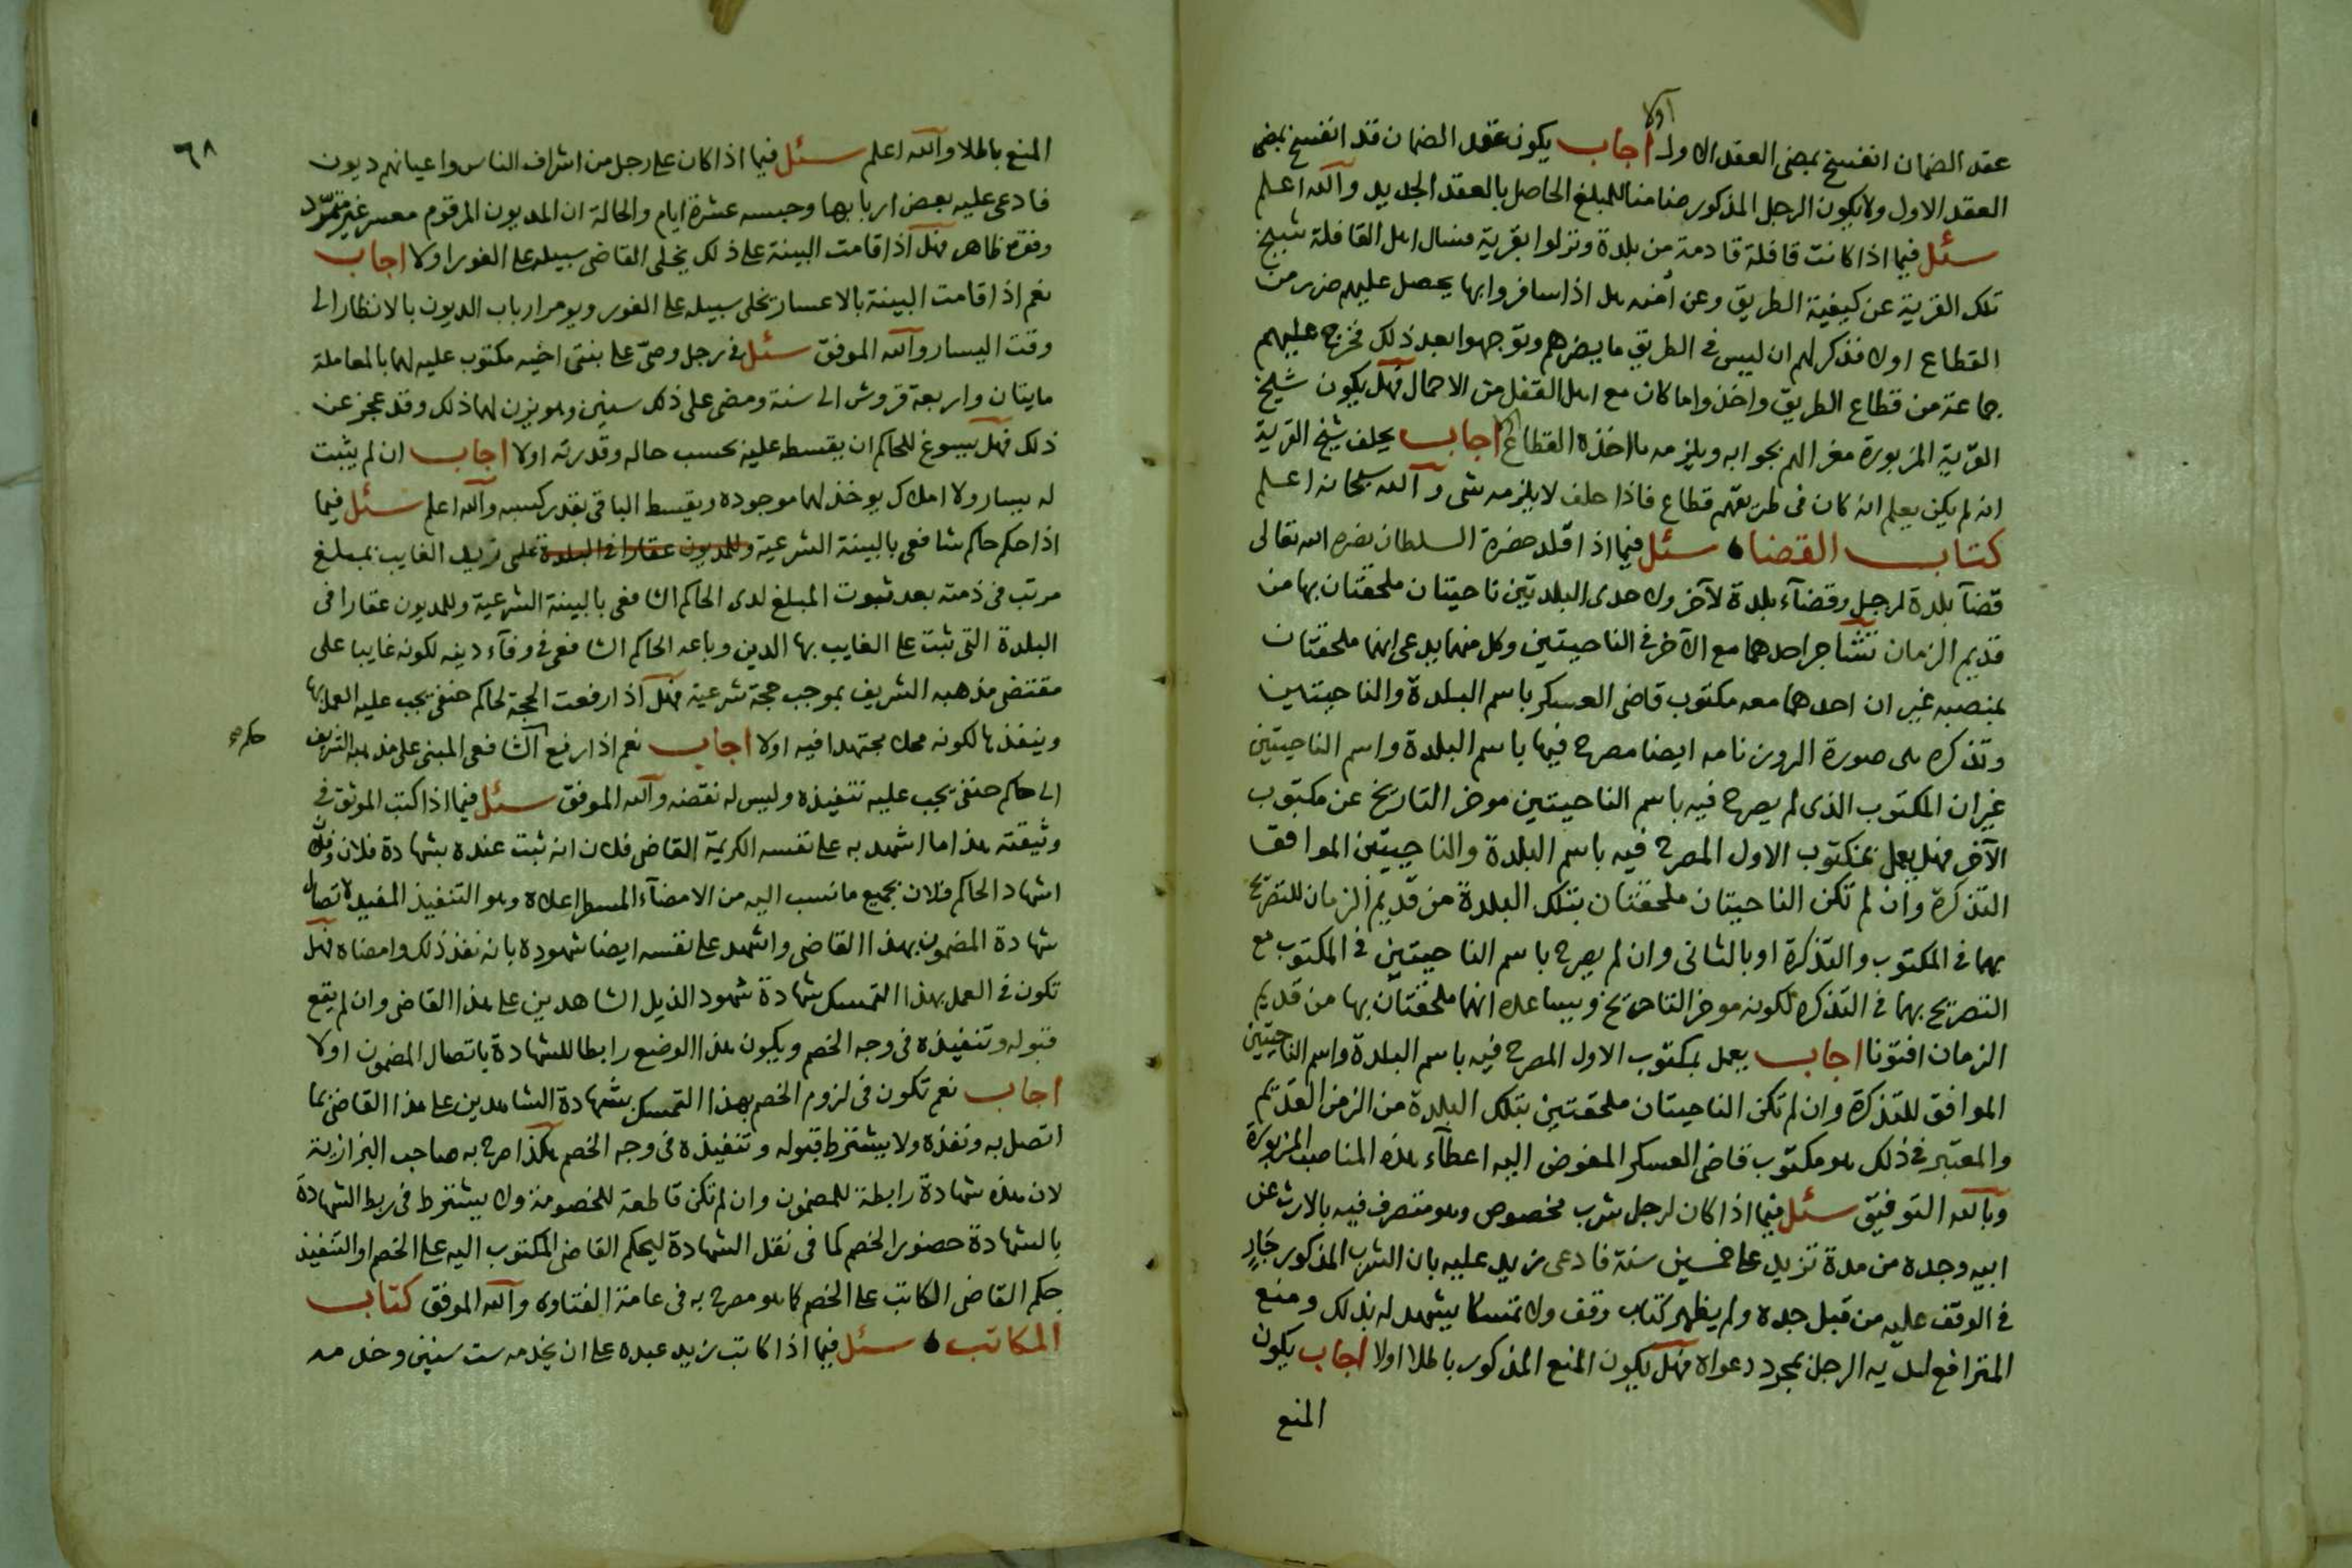 عقد الضمان انفسخ بمضى العقد الاول اولا اجاب يكون عقد الضمان قد انفسخ بمضى
العقد الاول ولا يكون الرجل المذكور ضامنا للمبلغ الحاصل بالعقد الجديد والله اعلم
سئل فيما اذا كانت قافلة قادمة من بلدة ونزلوا بقرية فسال اهل القافلة شيخ
تلك القرية عن كيفية الطريق وعن أمنه هل اذا سافروا بها يحصل عليهم ضرر من
القطاع اولا فذكر لهم ان ليس فى الطريق ما يضرهم وتوجهوا بعد ذلك فخرج عليهم
جماعة من قطاع الطريق واخذوا ما كان مع اهل القفل من الاحمال فهل يكون شيخ
القرية المزبورة مغرا لهم بجوابه ويلزمه ما اخذه القطاع اولا اجاب يحلف شيخ القرية
انه لم يكن يعلم انه كان فى طريقهم قطاع فاذا حلف لا يلزمه شى والله سبحانه اعلم
كتاب القضاء سئل فيما اذا قلد حضرة السلطان نصره الله تعالى
قضآ بلدة لرجل وقضآء بلدة لآخر ولاحدى البلدتين ناحيتان ملحقتان بها من
قديم الزمان تشاجر احدهما مع الآخر فى الناحيتين وكل منهما يدعى انهما ملحقتان
بمنصبه غير ان احدهما معه مكتوب قاضى العسكر باسم البلدة والناحيتين
وتذكره على صورة الروزنامه ايضا مصرح فيها باسم البلدة واسم الناحيتين
غير ان المكتوب الذى لم يصرح فيه باسم الناحيتين موخر التاريخ عن مكتوب
الآخر فهل يعمل بمكتوب الاول المصرح فيه باسم البلدة والناحيتين الموافق
التذكرة وان لم تكن الناحيتان ملحقتان بتلك البلدة من قديم الزمان للتصريح
بهما فى المكتوب والتذكرة او بالثانى وان لم يصرح باسم الناحيتين فى المكتوب مع
التصريح بهما فى التذكره لكونه موخر التاريخ ويساعده انهما ملحقتان بها من قديم
الزمان افتونا اجاب يعمل بمكتوب الاول المصرح فيه باسم البلدة واسم الناحيتين
الموافق للتذكرة وان لم تكن الناحيتان ملحقتين بتلك البلدة من الزمن القديم
والمعتبر فى ذلك هو مكتوب قاضى العسكر المفوض اليه اعطآء هذه المناصب المزبورة
وبالله التوفيق سئل فيما اذا كان لرجل شرب مخصوص وهو متصرف فيه بالارث عن
ابيه وجده من مدة تزيد على خمسين سنة فادعى زيد عليه بان الشرب المذكور جارٍ
فى الوقف عليه من قبل جده ولم يظهر كتاب وقف ولا تمسكا يشهد له بذلك ومنع
المترافع لديه الرجل بمجرد دعواه فهل يكون المنع المذكور باطلا اولا اجاب يكون
المنع
٦٨
المنع باطلا والله اعلم سئل فيما اذا كان على رجل من اشراف الناس واعيانهم ديون
فادعى عليه بعض اربابها وحبسه عشرة ايام والحالة ان المديون المرقوم معسر غير متمرّد
وفقره ظاهر فهل اذا قامت البينة على ذلك يخلى القاضى سبيله على الفور اولا اجاب
نعم اذا قامت البينة بالاعسار يخلى سبيله على الفور ويومر ارباب الديون بالانظار الى
وقت اليسار والله الموفق سئل فى رجل وصىّ على بنتى اخيه مكتوب عليه لهما بالمعاملة
مايتان واربعة قروش الى سنة ومضى على ذلك سنين وهو يزن لهما ذلك وقد عجز عن
ذلك فهل يسوغ للحاكم ان يقسطه عليه بحسب حاله وقدرته اولا اجاب ان لم يثبت
له يسار ولا املاك يوخذ لهما موجوده ويقسط الباقى بقدر كسبه والله اعلم سئل فيما
اذا حكم حاكم شافعى بالبينة الشرعية وللمديون عقارا فى البلدة على زيد الغايب بمبلغ
مرتب فى ذمته بعد ثبوت المبلغ لدى الحاكم الشافعى بالبينة الشرعية وللمديون عقارا فى
البلدة التى ثبت على الغايب بها الدين وباعه الحاكم الشافعى فى وفآء دينه لكونه غايبا على
مقتضى مذهبه الشريف بموجب حجة شرعية فهل اذا رفعت الحجة لحاكم حنفى يجب عليه العمل بها
وينفذها لكونه محلا مجتهدا فيه اولا اجاب نعم اذا رفع الشافعى المبنى على مذهبه الشريف
حكم
الى حاكم حنفى يجب عليه تنفيذه وليس له نقضه والله الموفق سئل فيما اذا كتب الموثق فى
وثيقته هذا ما اشهد به على نفسه الكريمة القاضى فلان انه ثبت عنده بشهادة فلان وفلان
اشهاد الحاكم فلان بجميع ما نسب اليه من الامضآء المسطر اعلاه وهو التنفيذ المفيد لاتصال
شهادة المضمون بهذا القاضى واشهد على نفسه ايضا شهوده بانه نفذ ذلك وامضاه فهل
تكون فى العمل بهذا التمسك شهادة شهود الذيل الشاهدين على هذا القاضى وان لم يقع
قبوله وتنفيذه فى وجه الخصم ويكون هذا الوضع رابطا للشهادة باتصال المضمون اولا
اجاب نعم تكون فى لزوم الخصم بهذا التمسك بشهادة الشاهدين على هذا القاضى بما
اتصل به ونفذه ولا يشترط قبوله وتنفيذه فى وجه الخصم هكذا صرح به صاحب البزازية
لان هذه شهادة رابطة للمضمون وان لم تكن قاطعة للخصومة ولا يشترط فى ربط الشهادة
بالشهادة حضور الخصم كما فى نقل الشهادة ليحكم القاضى المكتوب اليه على الخصم او التنفيذ
حكم القاضى الكاتب على الخصم كما هو مصرح به فى عامة الفتاوى والله الموفق كتاب
المكاتب سئل فيما اذا كاتب زيد عبده على ان يخدمه ست سنين وخدمه